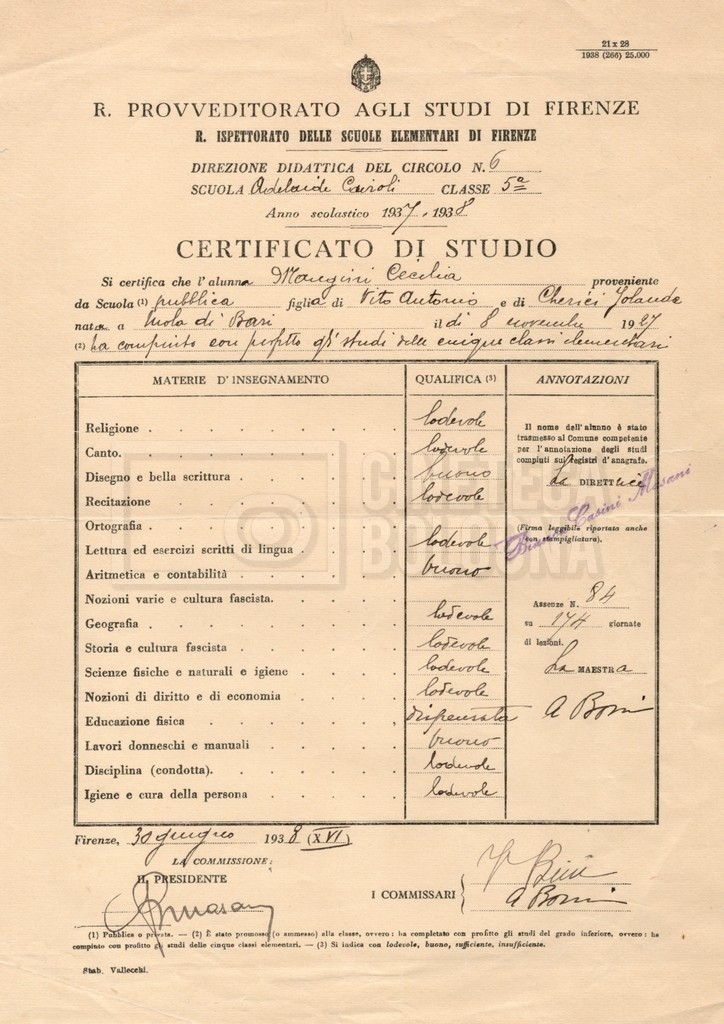 21 x 28
1938 (266) 25.000
R. PROVVEDITORATO AGLI STUDI DI FIRENZE
R. ISPETTORATO DELLE SCUOLE ELEMENTARI DI FIRENZE
DIREZIONE DIDATTICA DEL CIRCOLO N. 6
SCUOLA Adelaide Cairoli CLASSE 5ª
Anno scolastico 1937-1938
CERTIFICATO DI STUDIO
Si certifica che l'alunna Mangini Cecilia proveniente
da Scuola (1) pubblica figlia di Vito Antonio e di Cherici Jolanda
nat a Mola di Bari il dì 8 novembre 1927
(2) ha compiuto con profitto gli studi delle cinque classi elementari
MATERIE D'INSEGNAMENTO QUALIFICA (3) ANNOTAZIONI
Religione lodevole
Canto. lodevole
Disegno e bella scrittura buono
Recitazione lodevole
Ortografia
Lettura ed esercizi scritti di lingua lodevole
Aritmetica e contabilità buono
Nozioni varie e cultura fascista.
Geografia lodevole
Storia e cultura fascista lodevole
Scienze fisiche e naturali e igiene lodevole
Nozioni di diritto e di economia lodevole
Educazione fisica dispensata
Lavori donneschi e manuali buono
Disciplina (condotta). lodevole
Igiene e cura della persona lodevole
Il nome dell'alunno è stato
trasmesso al Comune competente
per l'annotazione degli studi
compiuti sui registri d'anagrafe.
La DIRETTrice
(Firma leggibile riportata anche
con stampigliatura).
Assenze N. 84
su 174 giornate
di lezioni.
La MAESTRA
CINETECA
BOLOGNA
Firenze, 30 giugno 1938 (XVI)
LA COMMISSIONE:
IL PRESIDENTE
I COMMISSARI
(1) Pubblica o privata. — (2) È stato promosso (o ammesso) alla classe, ovvero: ha completato con profitto gli studi del grado inferiore, ovvero: ha
compiuto con profitto gli studi delle cinque classi elementari. — (3) Si indica con lodevole, buono, sufficiente, insufficiente.
Stab. Vallecchi.